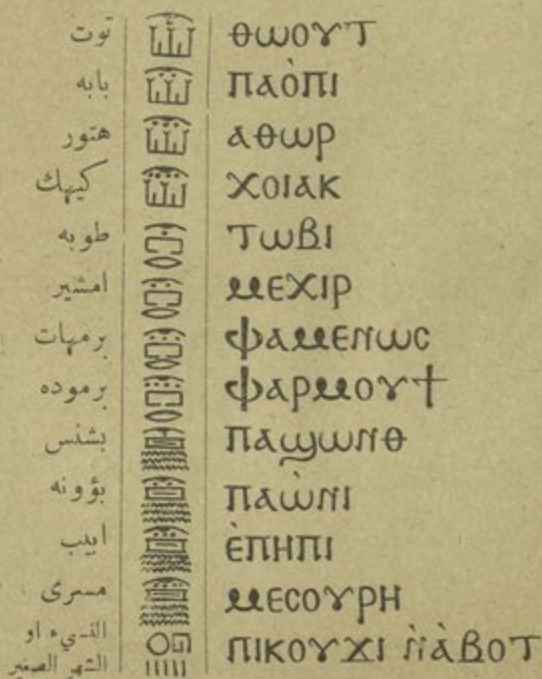 توت ⲑⲱⲟⲩⲧ
بابه ⲡⲁⲟ̀ⲡⲓ
هتور ⲁⲑⲱⲣ
كيهك ⲭⲟⲓⲁⲕ
طوبه ⲧⲱⲃⲓ
امشير ⲙⲉⲭⲓⲣ
برمهات ⲫⲁⲙⲉⲛⲱⲥ
برموده ⲫⲁⲣⲙⲟⲩϯ
بشنس ⲡⲁϣⲱⲛⲑ
بؤونه ⲡⲁⲱ̀ⲛⲓ
ابيب ⲉ̀ⲡⲏⲡⲓ
مسرى ⲙⲉⲥⲟⲩⲣⲏ
النسيء او ⲡⲓⲕⲟⲩϫⲓ ⲛ̀ⲁ̀ⲃⲟⲧ
الشهر الصغير